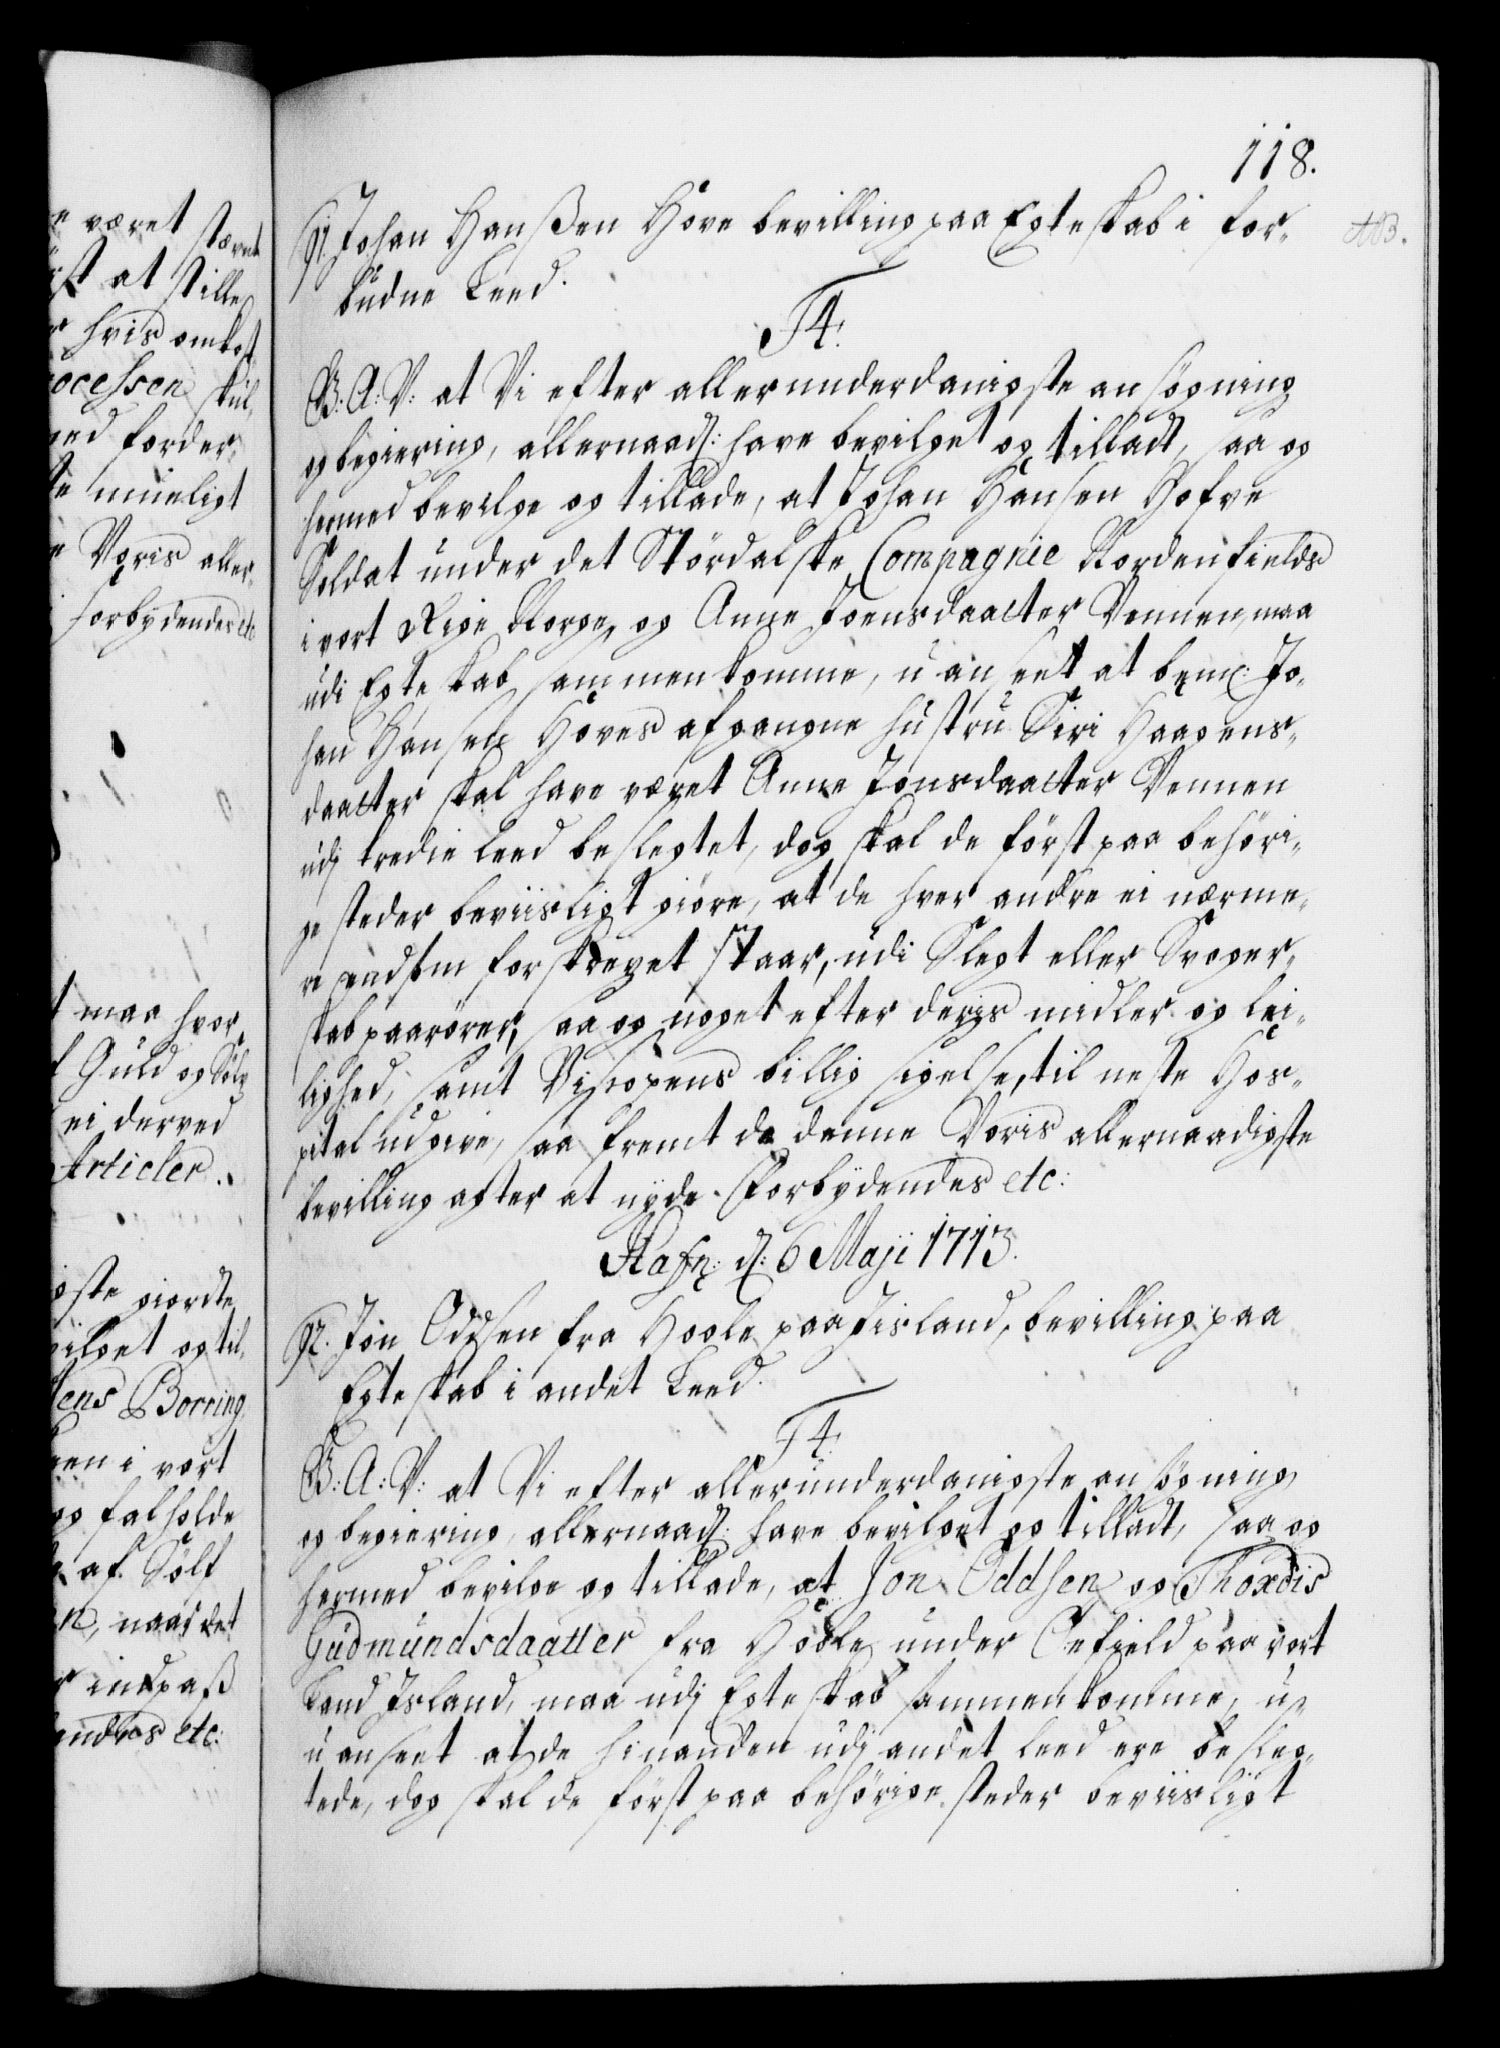 118.
91. Johan Hanßen Höve bevilling paa Egteskab i for-
budne Leed.
NB.
F4:
G: A: V: at Vi efter allerunderdanigste ansögning
og begiering, allernaadg: have bevilget og tilladt, saa og
hermed bevilge og tillade, at Johan Hansen Hofve
Soldat under det Stördalske Compagnie Nordenfields
i vort Rige Norge, og Anne Joensdaatter Vennen, maa
udi Egteskab sammenkomme, uanseet at bem: Jo-
han Hansen Höves afgangne hustru Siri Haagens-
daatter skal have været Anne Jonsdaatter Vennen
udj tredie leed beslegtet, dog skal de först paa behöri-
ge steder beviisligt giöre, at de hver andre ei nærme-
re end som forskrevet staar, udi Slegt eller Svoger-
skab paarörer, saa og noget efter deris midler og lei-
lighed, samt Biscopens billig sigelse, til neste Hos-
pital udgive, saa fremt de denne Voris allernaadigste
bevilling agter at nyde. Forbydendes etc:
Hafn: d: 6 Maji 1713.
92. Jon Oddsen fra Hoole paa Iisland, bevilling paa
Egteskab i andet Leed.
F4:
G: A: V: at Vi efter allerunderdanigste ansögning
og begiering, allernaadg: have bevilget og tilladt, saa og
hermed bevilge og tillade, at Jon Oddsen og Thordis
Gudmundsdaatter fra Hoole under Öefield paa vort
Land Island, maa udj Egteskab sammenkomme, u-
uanseet at de hinanden udj andet leed ere besleg-
tede, dog skal de först paa behörige steder beviisligt
været
at stille
hvis omkost
ocessen skul-
forder-
mueligt
Voris aller-
forbydendes etc
maa hvor
Guld og Sölv
ei derved
Articler.
giordte
vilget og til-
Jens Borring
i vort
og falholde
af Sölf
naar det
indpaß
etc: